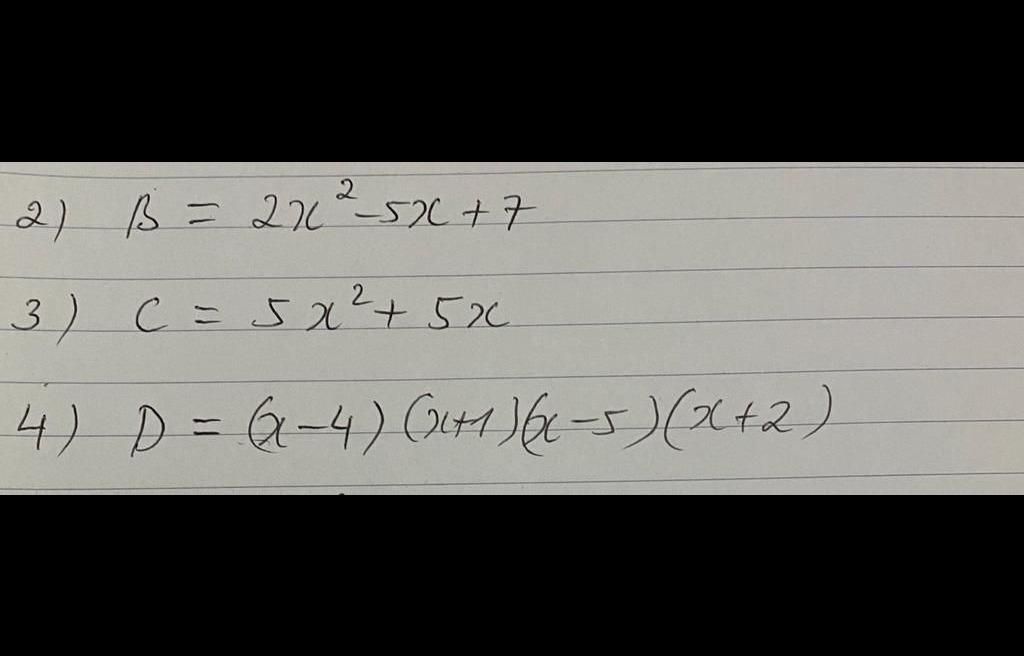 2) B = 2x²-5x+7
3) C = 5x²+5x
4) D = (x-4)(x+1)(x-5)(x+2)